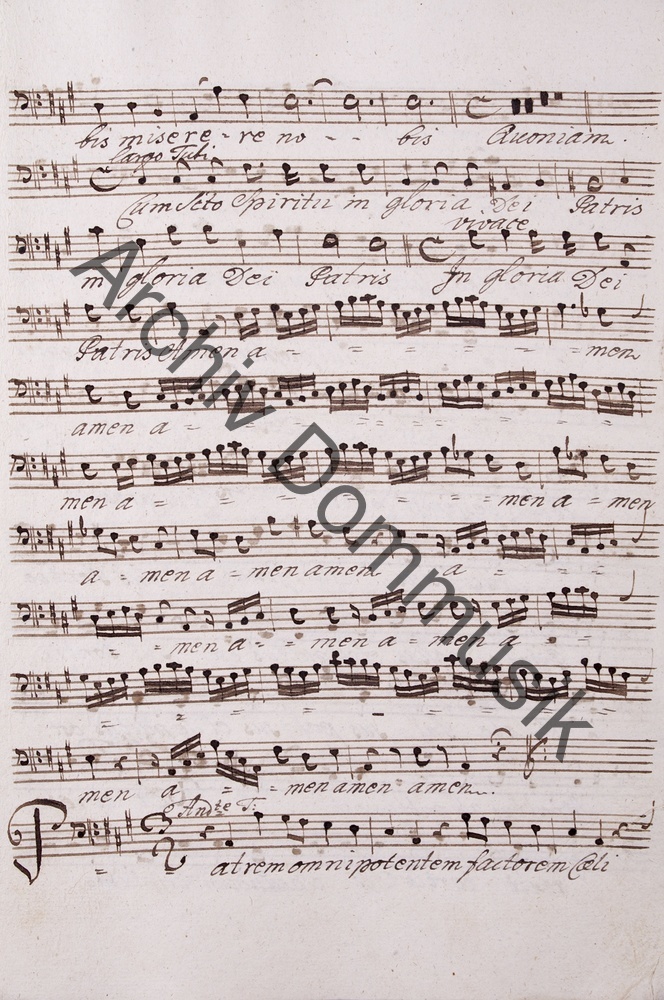 bis misere = re no - - bis Quoniam.
largo Tuti
Cum Scto Spiritu in gloria Dei Patris
vivace
in gloria Dei Patris In gloria Dei
Patris Amen a - = = = = = = men
amen a = = = = = = =
men a = = = = = = = men a = men
a = men a = men amen a = =
= = men a = = men a = men a = =
= = = = = = = = =
men a = = = men amen amen.
Andte T:
Patrem omnipotentem factorem Cœli
Archiv Dommusik